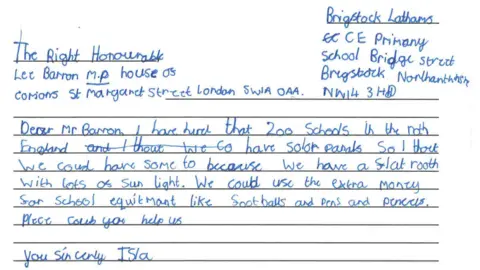 Brigstock Lathams
CE Primary
School Bridge Street
Brigstock Northants
NN14 3H
The Right Honourable
Lee Barron M.P house os
comons St Margaret Street London SW1A 0AA.
Dear Mr Barron, I have herd that 200 Schools in the nth
England and I thout we co have solar panals So I thort
We coud have some to because We have a Slat rooth
With lots os Sun light. We could use the extra money
Sor School equitmant like Snotballs and pens and pencils.
Plece coud you help us
you sincerly Isla